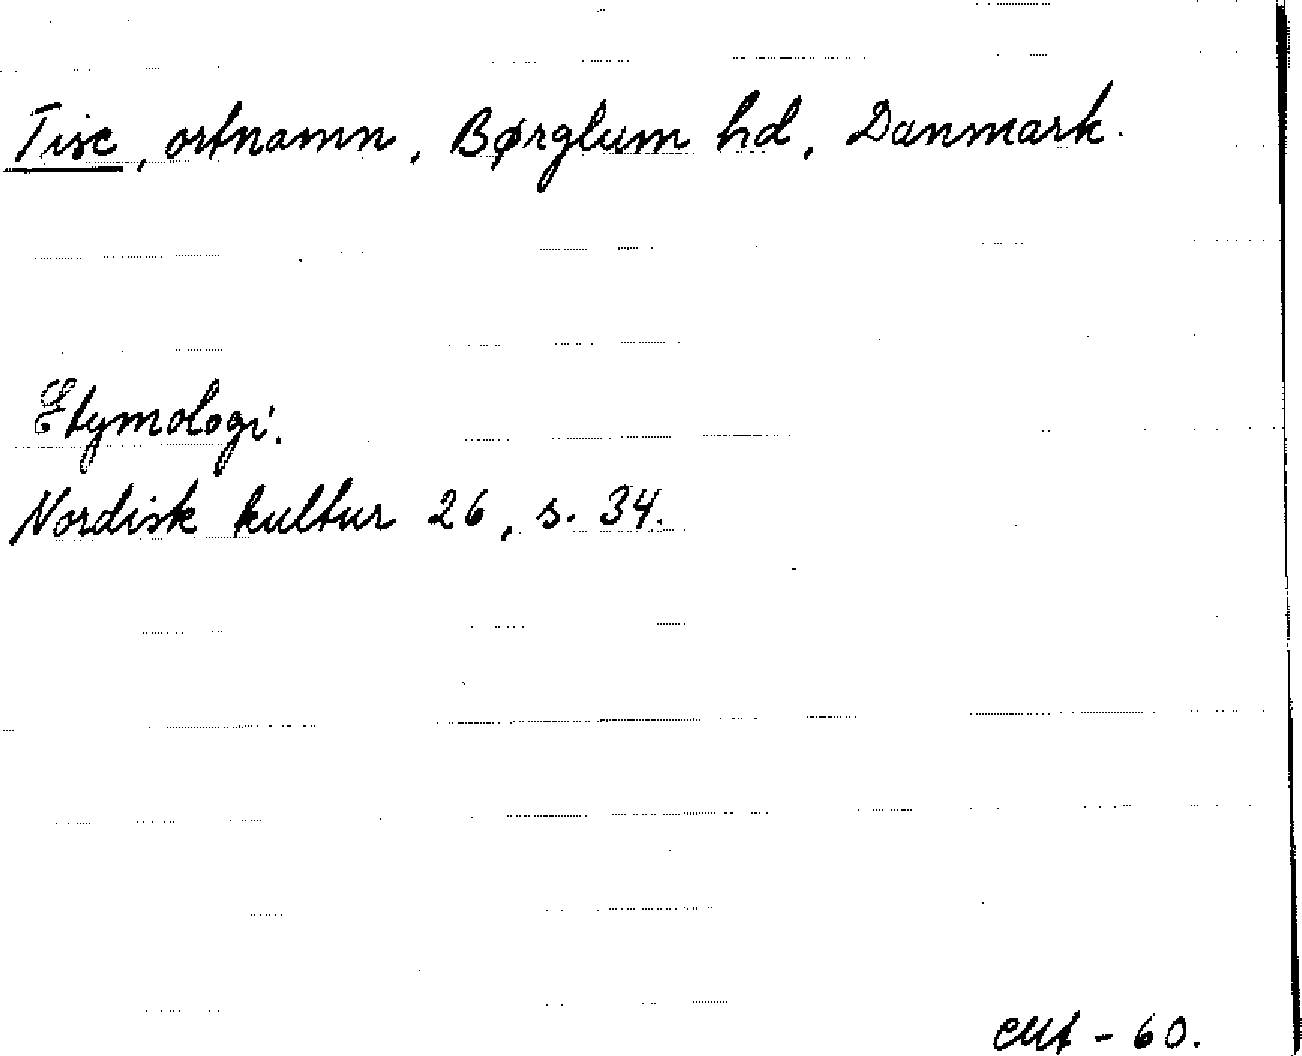 Tise, ortnamn, Børglum hd, Danmark.
Etymologi.
Nordisk kultur 26, s. 34.
- 60.